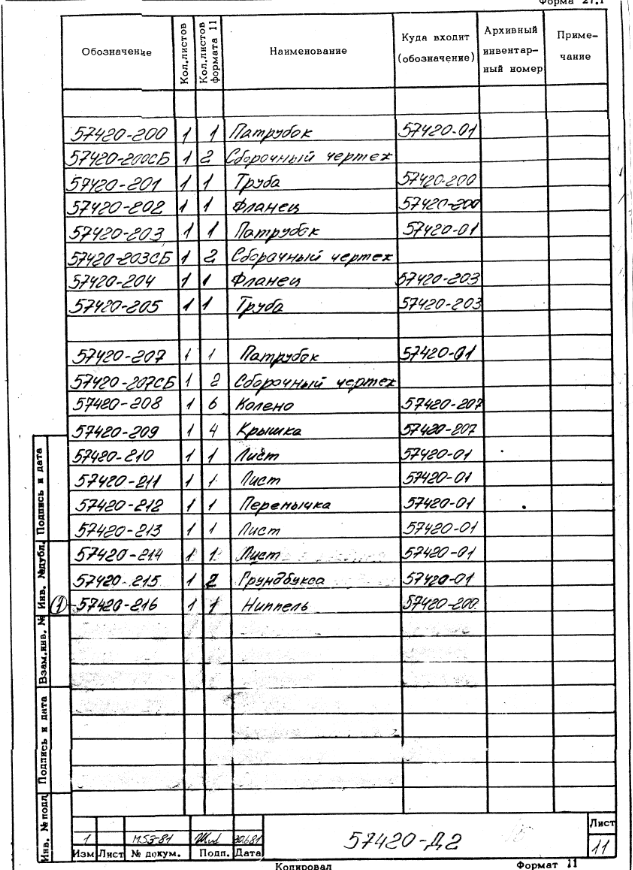 Форма 27.1
Обозначение Кол.листов Кол.листов формата 11 Наименование Куда входит (обозначение) Архивный инвентар-ный номер Приме-чание
57420-200 1 1 Патрубок 57420-01
57420-200СБ 1 2 Сборочный чертеж
57420-201 1 1 Труба 57420-200
57420-202 1 1 Фланец 57420-200
57420-203 1 1 Патрубок 57420-01
57420-203СБ 1 2 Сборочный чертеж
57420-204 1 1 Фланец 57420-203
57420-205 1 1 Труба 57420-203
57420-207 1 1 Патрубок 57420-01
57420-207СБ 1 2 Сборочный чертеж
57420-208 1 6 Колено 57420-207
57420-209 1 4 Крышка 57420-207
57420-210 1 1 Лист 57420-01
57420-211 1 1 Лист 57420-01
57420-212 1 1 Перемычка 57420-01
57420-213 1 1 Лист 57420-01
57420-214 1 1 Лист 57420-01
57420-215 1 2 Грундбукса 57420-01
1 57420-216 1 1 Ниппель 57420-200
Инв. № подл Подпись и дата Взам.инв. № Инв. №дубл. Подпись и дата
1
Изм Лист № докум. Подп. Дата
57420-Д2
Лист
11
Копировал Формат 11